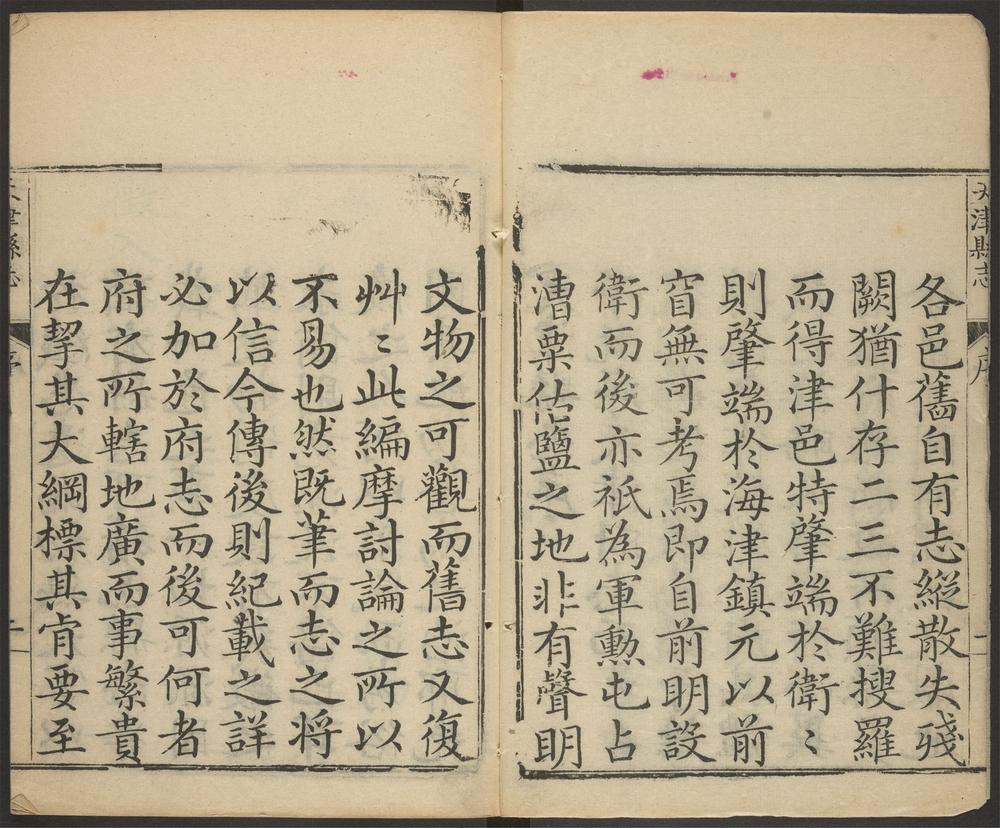 天津縣志
序
各邑舊自有志縱散失殘
闕猶什存二三不難搜羅
而得津邑特肇端於衛〻
則肇端於海津鎮元以前
窅無可考焉即自前明設
衛而後亦祇為軍勲屯占
漕粟估鹽之地非有聲明
文物之可觀而舊志又復
艸〻此編摩討論之所以
不易也然既筆而志之将
以信今傳後則紀載之詳
必加於府志而後可何者
府之所轄地廣而事繁貴
在挈其大綱標其肯要至
津縣志